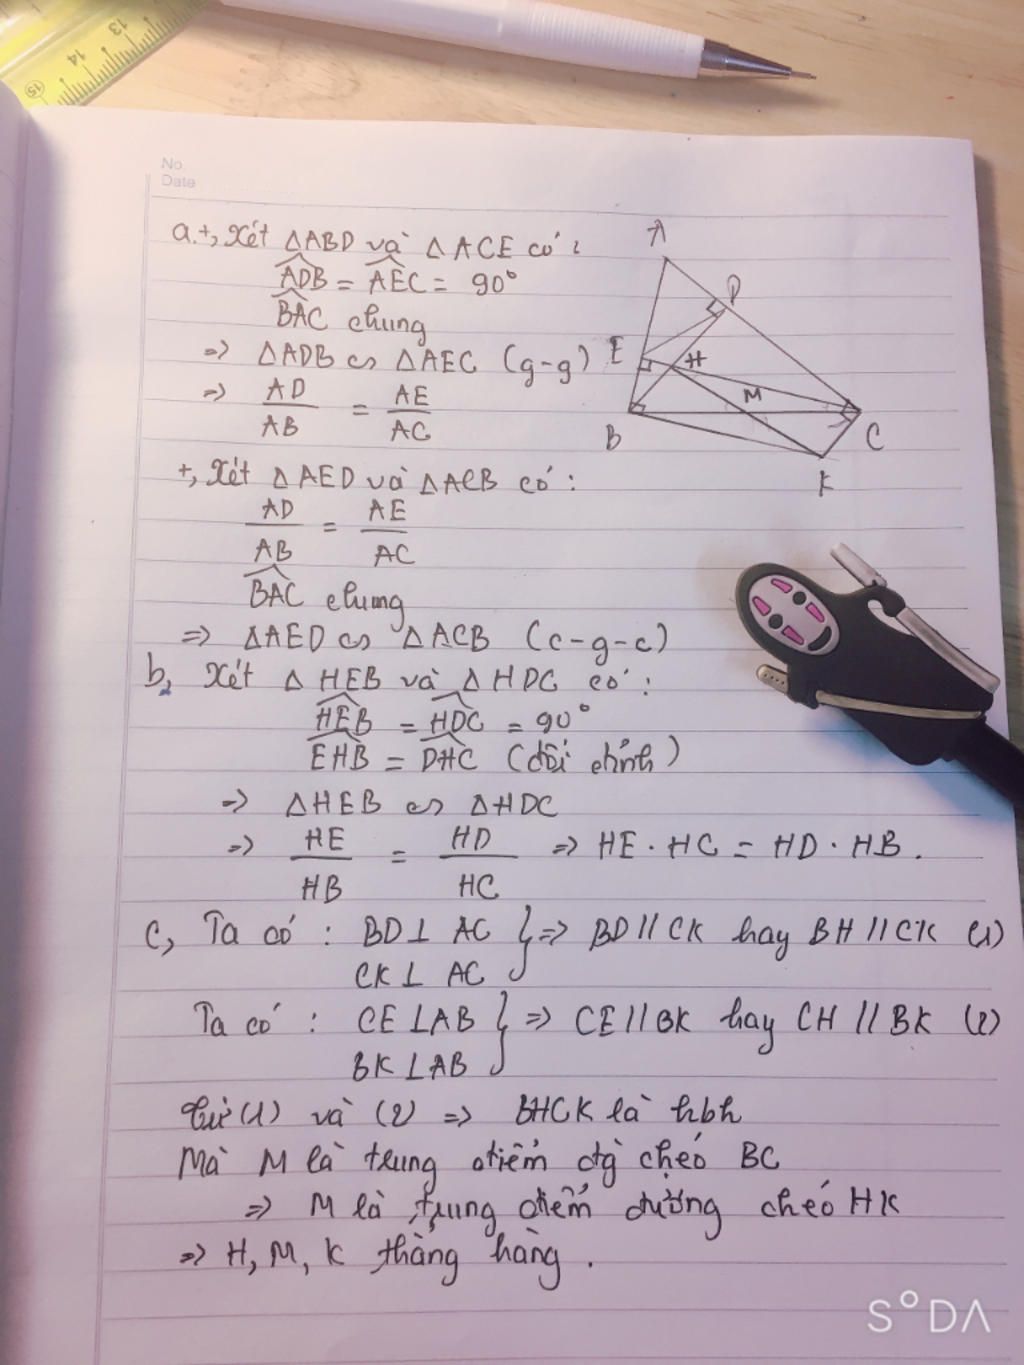 No.
Date
13
14
15
a.+, Xét ΔABD và ΔACE có :
ADB = AEC = 90°
BAC chung
=> ΔADB ∽ ΔAEC (g-g)
=> AD/AB = AE/AC
+, Xét ΔAED và ΔACB có :
AD/AB = AE/AC
BAC chung
=> ΔAED ∽ ΔACB (c-g-c)
b, Xét Δ HEB và Δ HDC có :
HEB = HDC = 90°
EHB = DHC (đối đỉnh)
=> ΔHEB ∽ ΔHDC
=> HE/HB = HD/HC => HE . HC = HD . HB .
c, Ta có : BD⊥ AC } => BD // CK hay BH // CK (1)
CK⊥ AC
Ta có : CE⊥AB } => CE // BK hay CH // BK (2)
BK⊥AB
Từ (1) và (2) => BHCK là hbh
Mà M là trung điểm đg chéo BC
=> M là trung điểm đường chéo HK
=> H, M, K thẳng hàng .
A
D
E
H
M
B
C
K
SODA